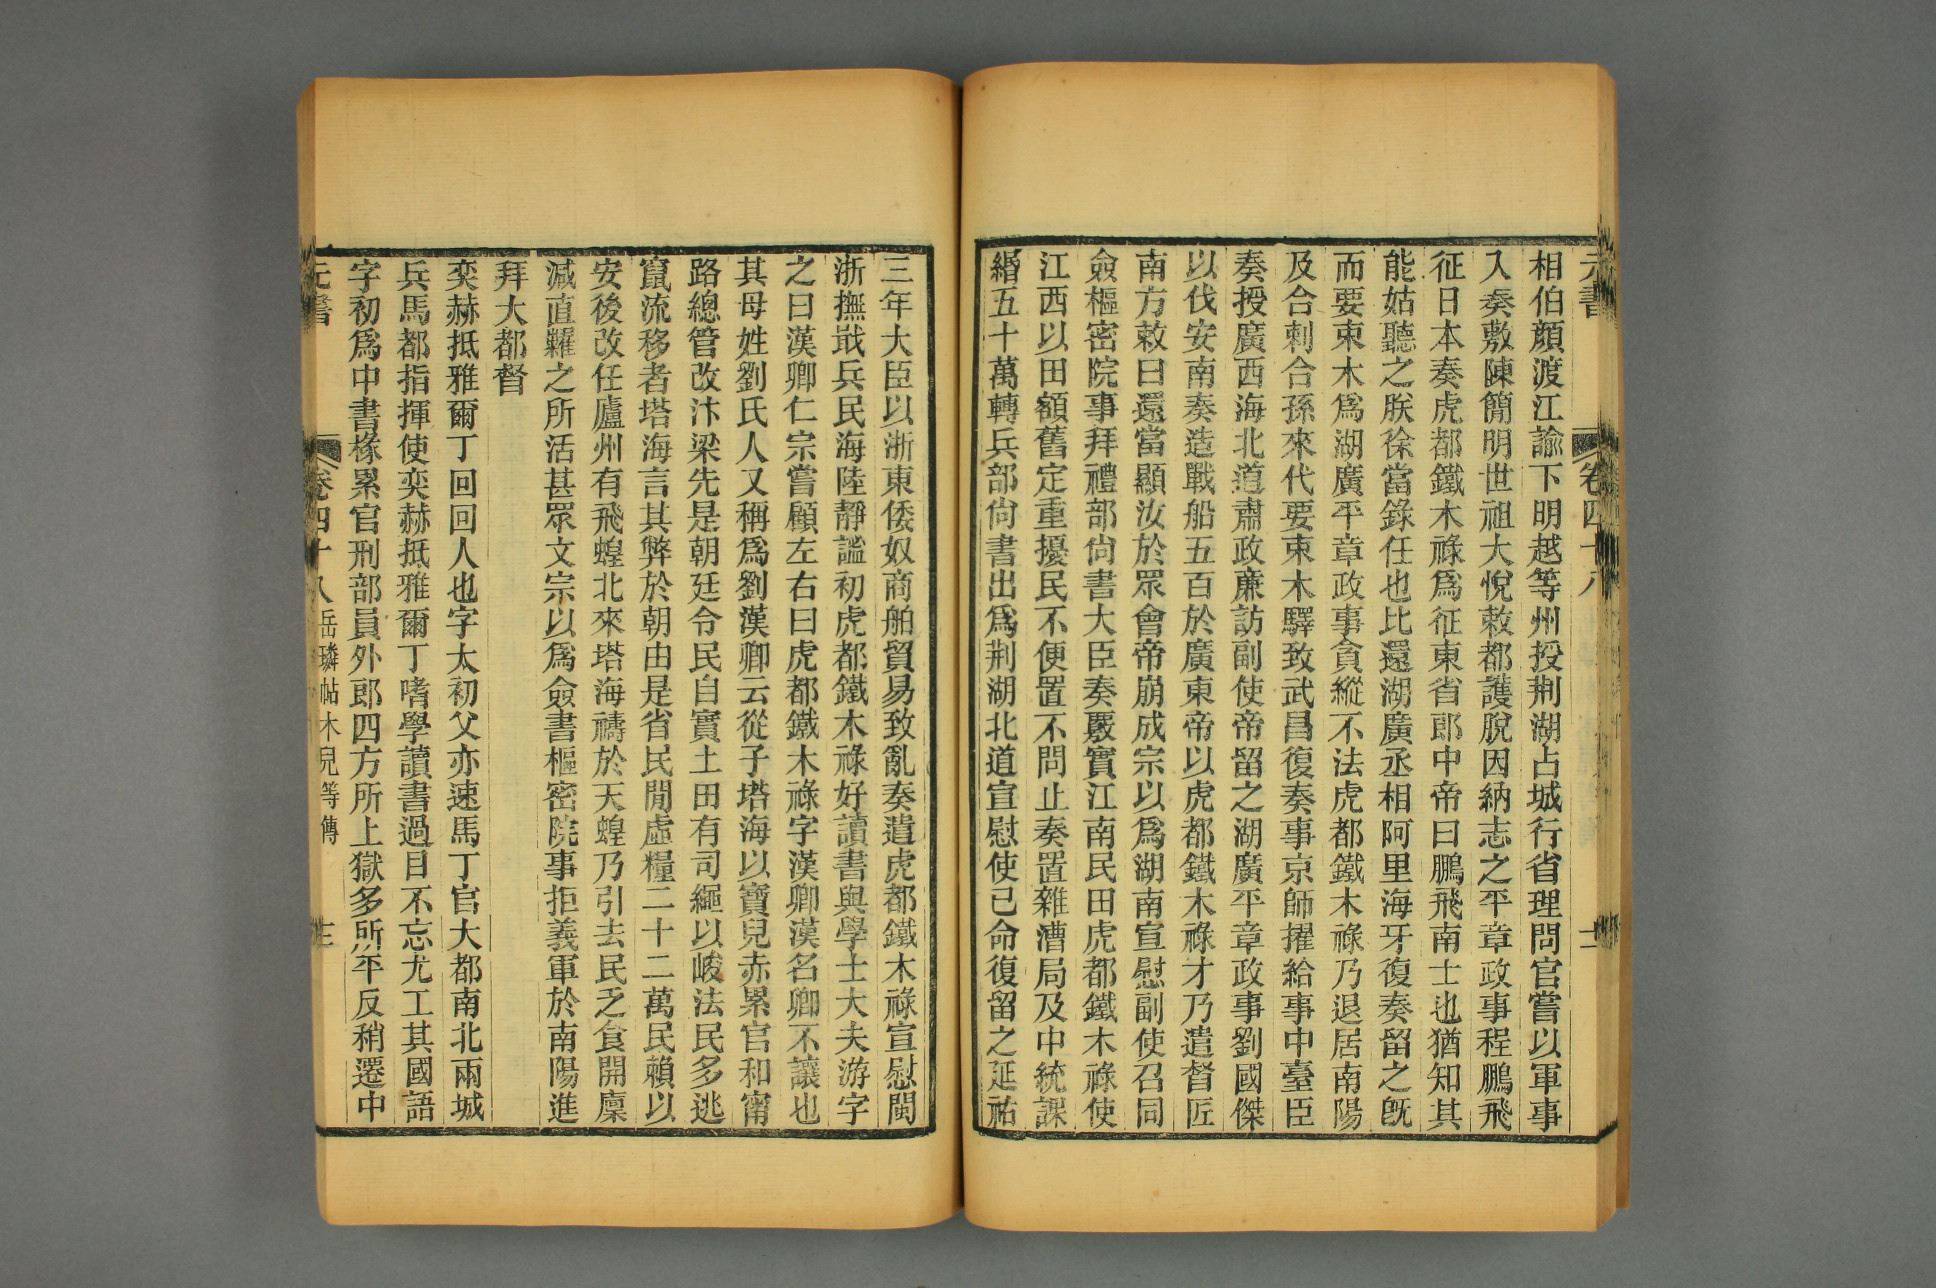 元書
卷四十八
十二
相伯顏渡江諭下明越等州授荆湖占城行省理問官嘗以軍事
入奏敷陳簡明世祖大悅敕都護脫因納志之平章政事程鵬飛
征日本奏虎都鐵木祿爲征東省郎中帝曰鵬飛南士也猶知其
能姑聽之朕徐當錄任也比還湖廣丞相阿里海牙復奏留之旣
而要束木爲湖廣平章政事貪縱不法虎都鐵木祿乃退居南陽
及合剌合孫來代要束木驛致武昌復奏事京師擢給事中臺臣
奏授廣西海北道肅政廉訪副使帝留之湖廣平章政事劉國傑
以伐安南奏造戰船五百於廣東帝以虎都鐵木祿才乃遣督匠
南方敕曰還當顯汝於眾會帝崩成宗以爲湖南宣慰副使召同
僉樞密院事拜禮部尙書大臣奏覈實江南民田虎都鐵木祿使
江西以田額舊定重擾民不便置不問止奏置雜漕局及中統課
緡五十萬轉兵部尙書出爲荆湖北道宣慰使已命復留之延祐
三年大臣以浙東倭奴商舶貿易致亂奏遣虎都鐵木祿宣慰閩
浙撫戢兵民海陸靜謐初虎都鐵木祿好讀書與學士大夫游字
之曰漢卿仁宗嘗顧左右曰虎都鐵木祿字漢卿漢名卿不讓也
其母姓劉氏人又稱爲劉漢卿云從子塔海以寶兒赤累官和甯
路總管改汴梁先是朝廷令民自實土田有司繩以峻法民多逃
竄流移者塔海言其弊於朝由是省民閒虛糧二十二萬民賴以
安後改任廬州有飛蝗北來塔海禱於天蝗乃引去民乏食開廩
減直糶之所活甚眾文宗以爲僉書樞密院事拒義軍於南陽進
拜大都督
奕赫抵雅爾丁回回人也字太初父亦速馬丁官大都南北兩城
兵馬都指揮使奕赫抵雅爾丁嗜學讀書過目不忘尤工其國語
字初爲中書椽累官刑部員外郎四方所上獄多所平反稍遷中
元書
卷四十八
岳璘帖木兒等傳